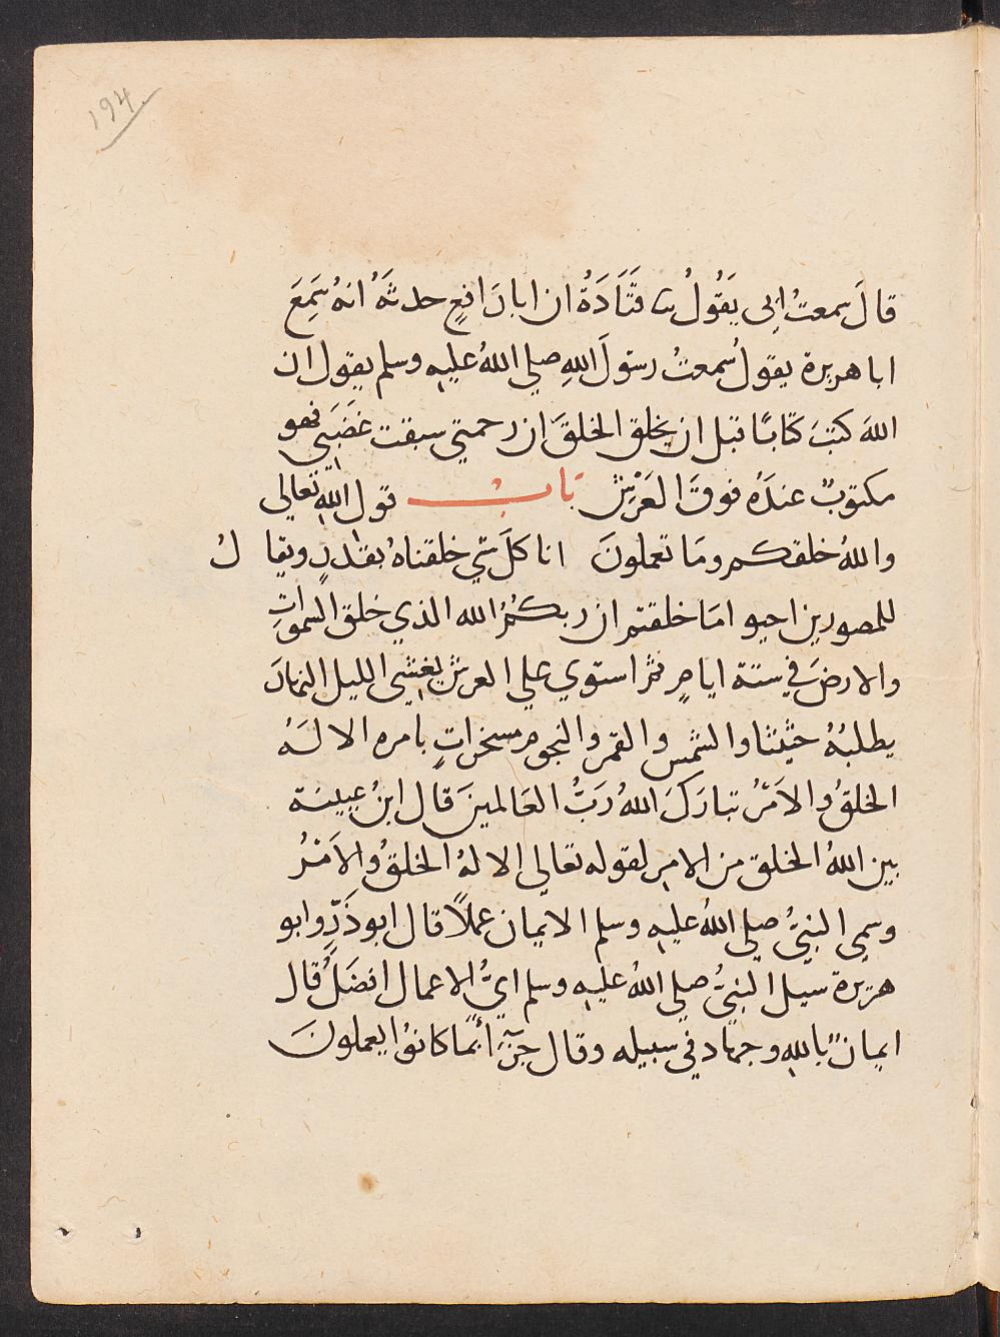 ١٩٤
قالَ سمعتُ ابي يَقُولُ ثنا قَتَادَةُ ان ابا رَافعٍ حدثَهُ انهُ سَمِعَ
ابا هريرة يقولُ سمعتُ رسُولَ اللهِ صلي اللهُ عليهِ وسلم يقول ان
اللهَ كتبَ كتابًا قبل ان يخلق الخلقَ ان رحمتي سبقت غضَبَي فهو
مكتوبٌ عندَهُ فوقَ العَرْشِ بَابُ قولِ اللهِ تعالى
واللهُ خلقكم ومَا تعملونَ انا كلَ شَيٍ خلقناهُ بقدَرٍ ويقالُ
للمصورين احيو امَا خلقتم ان ربكُمُ الله الذي خلق السموَاتِ
والارضَ في ستة ايامٍ ثم استوي علي العرش يغشي الليل النهارَ
يطلبُهُ حثيثا والشمس والقمر والنجوم مسخراتٍ بامره الا لَهُ
الخلقُ والاَمْرُ تبارَكَ اللهُ رَبُّ العَالمينَ قال ابنُ عيينة
بين اللهُ الخلق من الامرِ لقوله تعالي الا لهُ الخلقُ والاَمْرُ
وسمي النبيُّ صلي اللهُ عليهِ وسلم الايمان عملاً قال ابو ذَرٍّ وابو
هريرة سيل النبيُّ صلي اللهُ عليهِ وسلم ايُّ الاعمال افضَلُ قال
ايمانٌ باللهِ وجهاد في سبيله وقال جزَآءً بما كانوُا يعملونَ